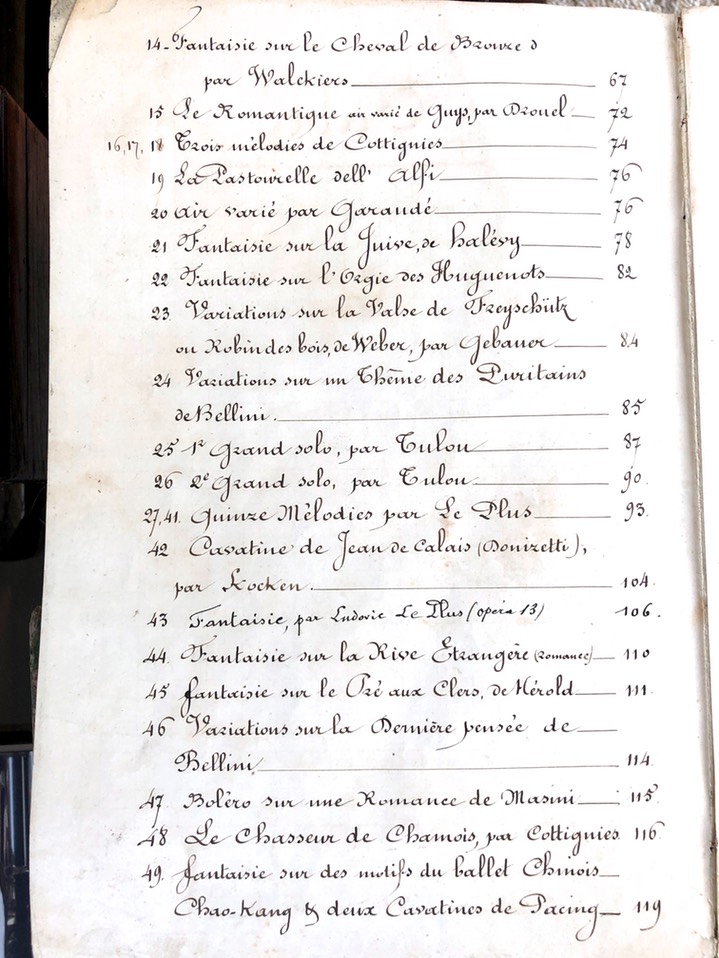 14 - Fantaisie sur le Cheval de Bronze
par Walckiers 67
15 Le Romantique air varié de Guys, par Drouet 72
16, 17, 18 Trois mélodies de Cottignies 74
19 La Pastourelle dell' Alpi 76
20 Air varié par Garaudé 76
21 Fantaisie sur la Juive, de halévy 78
22 Fantaisie sur l'Orgie des Huguenots 82
23 Variations sur la Valse de Freyschütz
ou Robin des bois, de Weber, par Gebauer 84
24 Variations sur un Thême des Puritains
de Bellini. 85
25 1r Grand solo, par Tulou 87
26 2e Grand solo, par Tulou 90.
27, 41. Quinze Mélodies par Le Plus 93.
42 Cavatine de Jean de Calais (Donizetti),
par Kocken. 104.
43 Fantaisie, par Ludovic Le Plus (opéra 13) 106.
44. Fantaisie sur la Rive Etrangère (romance) 110
45 fantaisie sur le Pré aux Clers, de Hérold 111.
46 Variations sur la Dernière pensée de
Bellini 114.
47. Boléro sur une Romance de Masini 115.
48 Le Chasseur de Chamois, par Cottignies. 116
49. fantaisie sur des motifs du ballet Chinois
Chao-Kang & deux Cavatines de Pacing 119